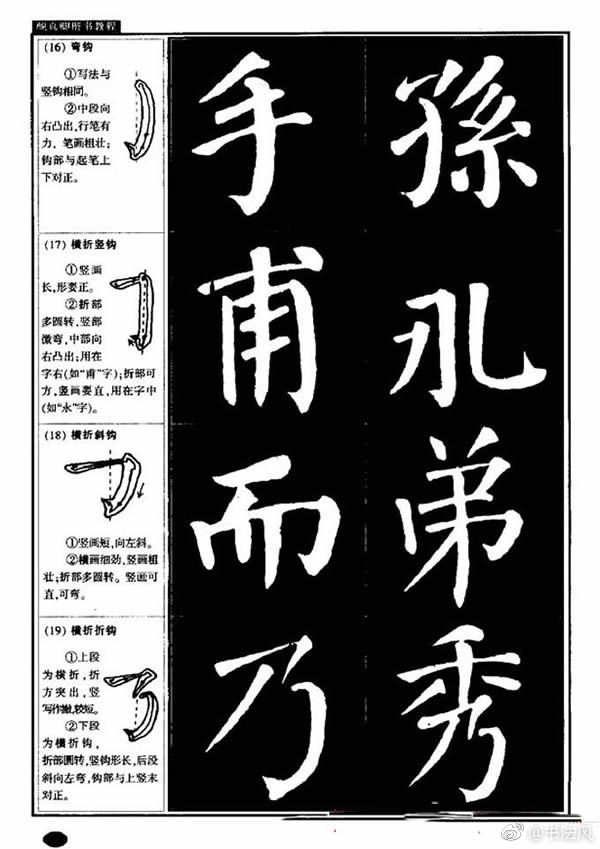 颜真卿楷书教程
(16) 弯钩
①写法与
竖钩相同。
②中段向
右凸出,行笔有
力,笔画粗壮;
钩部与起笔上
下对正。
手 孫
(17) 横折竖钩
①竖画
长,形要正。
②折部
多圆转,竖部
微弯,中部向
右凸出;用在
字右(如“甫”字);折部可
方,竖画要直,用在字中
(如“永”字)。
甫
(18) 横折斜钩
①竖画短,向左斜。
②横画细劲,竖画粗
壮;折部多圆转。竖画可
直,可弯。
而 弟
(19) 横折折钩
①上段
为横折,折
方突出,竖
写作撇,较短。
②下段
为横折钩,
折部圆转,竖钩形长,后段
斜向左弯,钩部与上竖末
对正。
乃 秀
@书法网